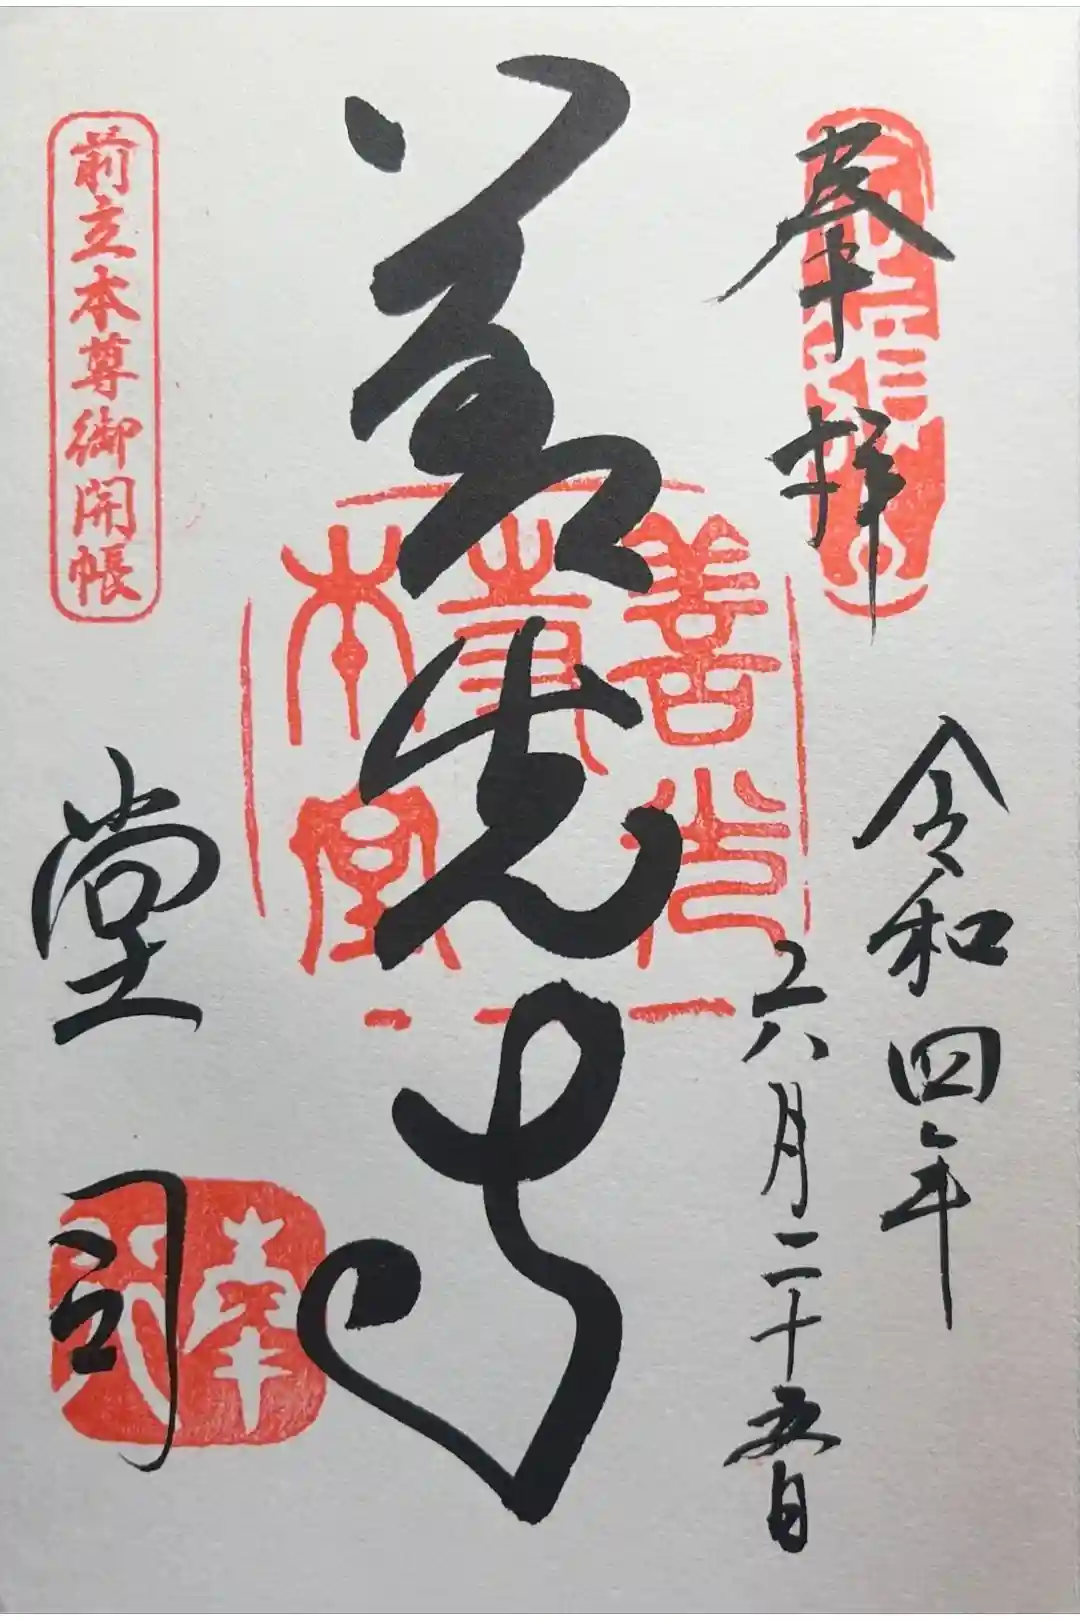 奉拝
令和四年
六月二十五日
善光寺
善光
本堂
前立本尊御開帳
堂司
奉